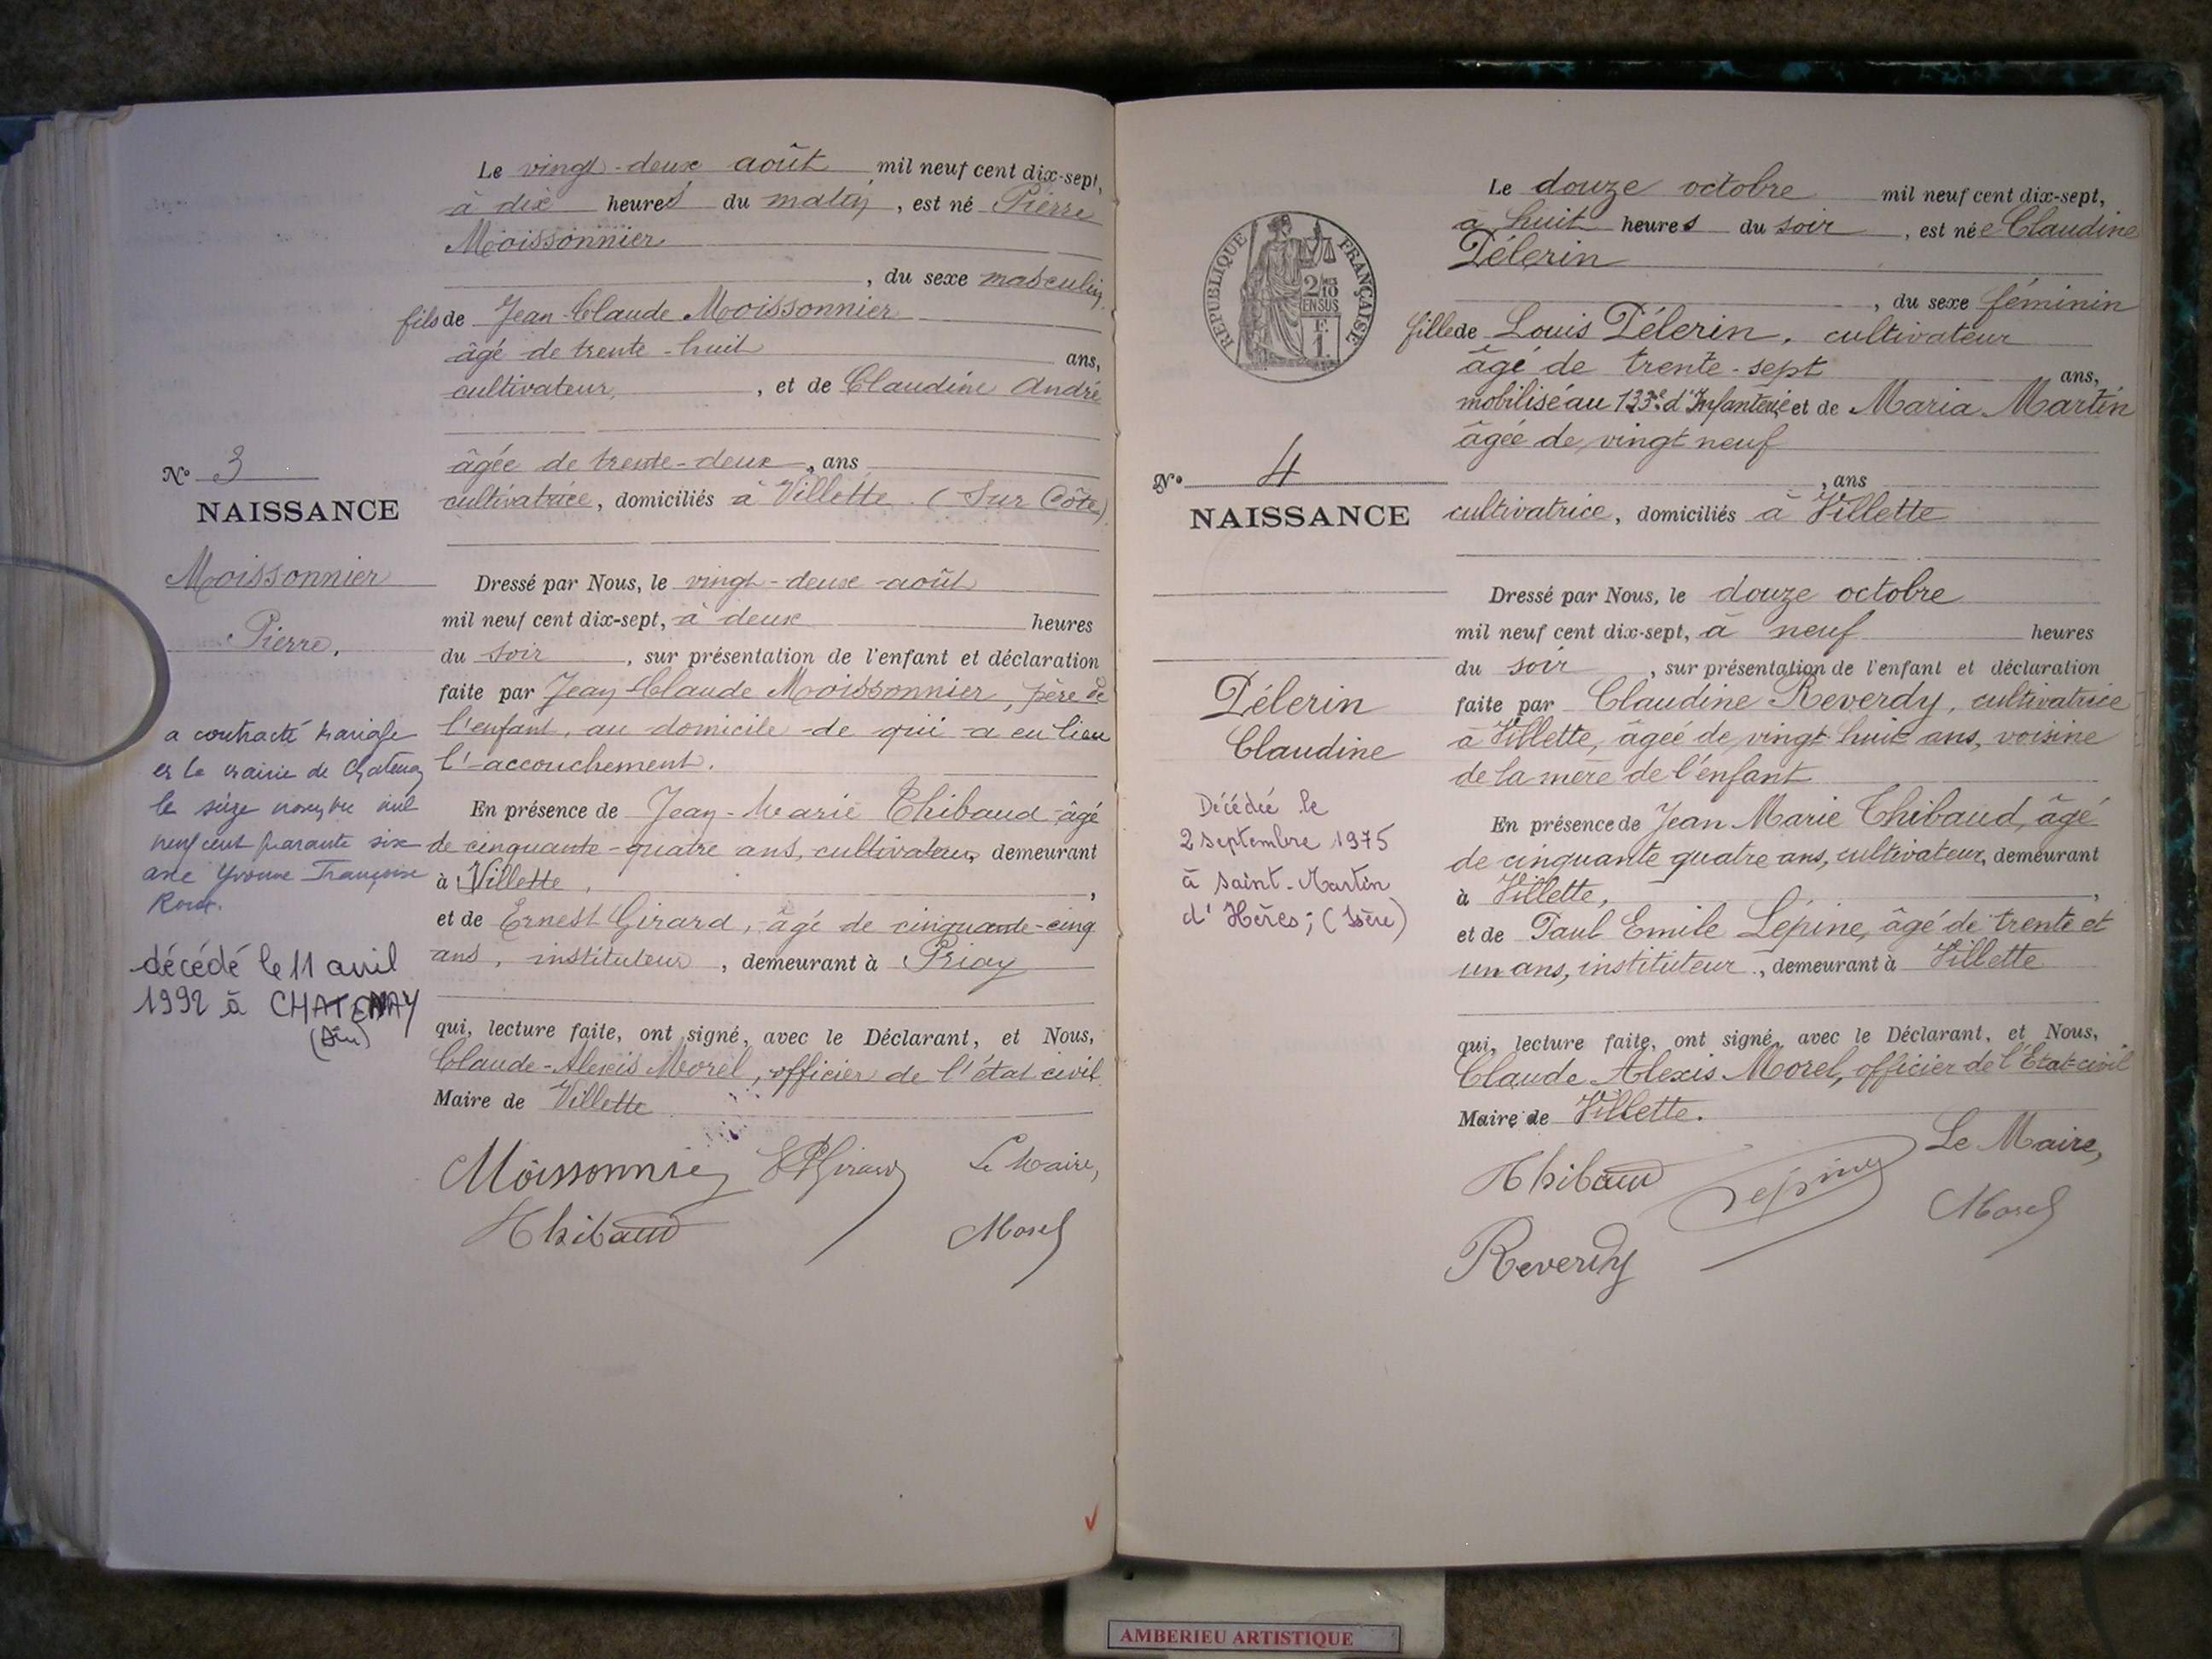 Le vingt-deux août mil neuf cent dix-sept,
à dix heures du matin, est né Pierre
Moissonnier
, du sexe masculin
fils de Jean-Claude Moissonnier
âgé de trente-huit ans,
cultivateur, et de Claudine André
âgée de trente-deux, ans
cultivatrice, domiciliés à Villette (Sur Côte)
N° 3
NAISSANCE
Moissonnier
Pierre,
a contracté mariage
en la mairie de Chatenay
le seize novembre mil
neuf cent quarante six
avec Yvonne Françoise
Roux.
décédé le 11 avril
1992 à CHATENAY
(Ain)
Dressé par Nous, le vingt-deux août
mil neuf cent dix-sept, à deux heures
du soir, sur présentation de l'enfant et déclaration
faite par Jean-Claude Moissonnier, père de
l'enfant, au domicile de qui a eu lieu
l'accouchement.
En présence de Jean-Marie Thibaud âgé
de cinquante-quatre ans, cultivateur, demeurant
à Villette,
et de Ernest Girard, âgé de cinquante-cinq
ans, instituteur, demeurant à Priay
qui, lecture faite, ont signé, avec le Déclarant, et Nous,
Claude-Alexis Morel, officier de l'état civil
Maire de Villette
Moissonnier Girard Le Maire,
Thibaud Morel
REPUBLIQUE FRANÇAISE
2/10
EN SUS
F.
1.
Le douze octobre mil neuf cent dix-sept,
à huit heures du soir, est née Claudine
Pélerin
, du sexe féminin
fille de Louis Pélerin, cultivateur
âgé de trente-sept ans,
mobilisé au 133e d'Infanterie et de Maria Martin
âgée de vingt neuf
, ans
cultivatrice, domiciliés à Villette
N° 4
NAISSANCE
Pélerin
Claudine
Décédée le
2 septembre 1975
à Saint-Martin
d'Hères; (Isère)
Dressé par Nous, le douze octobre
mil neuf cent dix-sept, à neuf heures
du soir, sur présentation de l'enfant et déclaration
faite par Claudine Reverdy, cultivatrice
à Villette, âgée de vingt huit ans, voisine
de la mère de l'enfant
En présence de Jean Marie Thibaud, âgé
de cinquante quatre ans, cultivateur, demeurant
à Villette,
et de Paul Emile Lépine, âgé de trente et
un ans, instituteur, demeurant à Villette
qui, lecture faite, ont signé, avec le Déclarant, et Nous,
Claude Alexis Morel, officier de l'Etat-civil
Maire de Villette.
Le Maire,
Thibaud Lépine Morel
Reverdy
AMBERIEU ARTISTIQUE